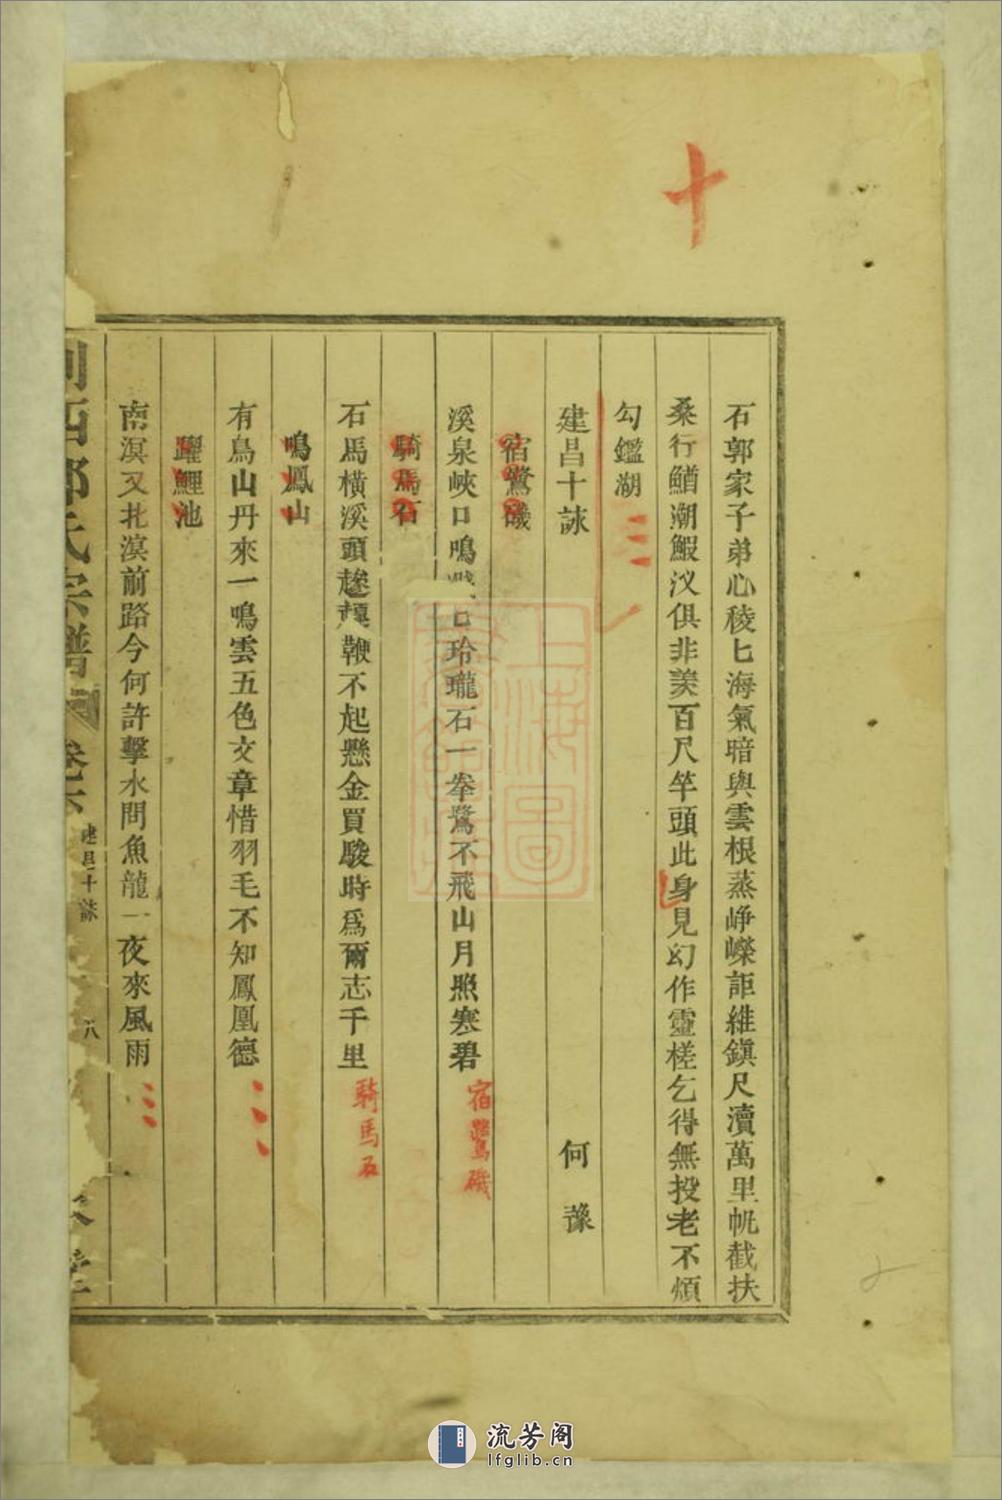 十
石郭家子弟心稜匕海氣暗與雲根蒸崢嶸詎維鎮尺瀆萬里帆截扶
桑行鰌潮鰕汊俱非羨百尺竿頭此身見幻作靈槎乞得無投老不煩
勾鑑湖
建昌十詠 何豫
宿鷺磯
溪泉峽口鳴玲瓏石一拳鷺不飛山月照寒碧
宿鷺磯
騎馬石
石馬橫溪頭鞭不起懸金買駿時爲爾志千里
騎馬石
鳴鳳山
有鳥山丹來一鳴雲五色文章惜羽毛不知鳳凰德
躍鯉池
南溟又北溟前路今何許擊水問魚龍一夜來風雨
西氏宗譜 卷六 建昌十詠 八 堂
上海圖書館藏
流芳阁
lfglib.cn